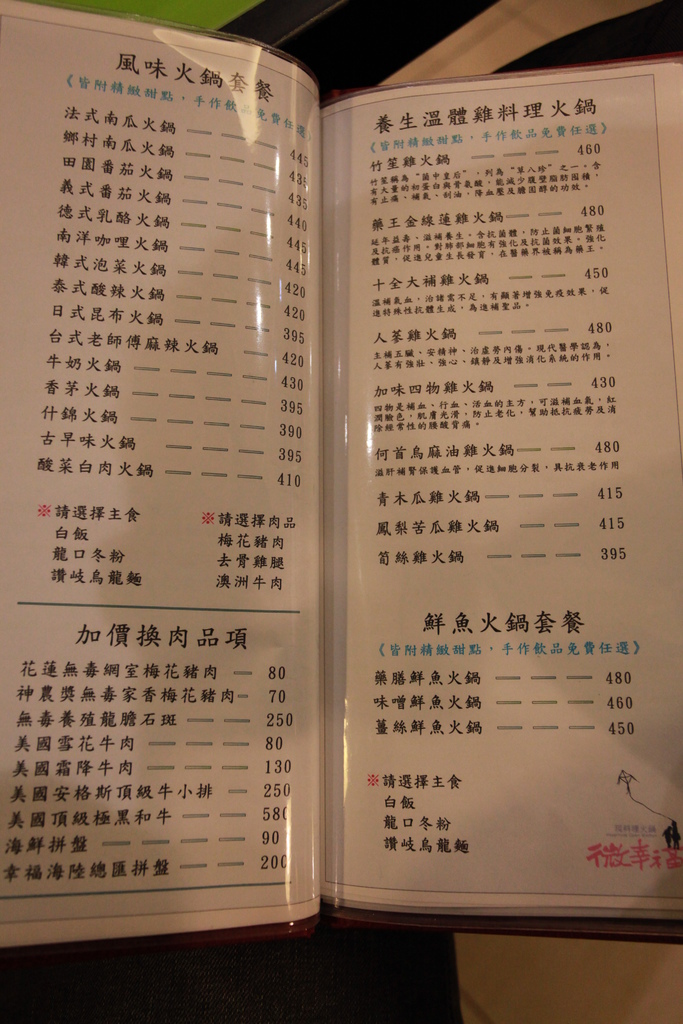 風味火鍋套餐
《皆附精緻甜點，手作飲品免費任選》
法式南瓜火鍋 — — — 445
鄉村南瓜火鍋 — — — 435
田園番茄火鍋 — — — 435
義式番茄火鍋 — — — 440
德式乳酪火鍋 — — — 445
南洋咖哩火鍋 — — — 445
韓式泡菜火鍋 — — — 420
泰式酸辣火鍋 — — — 420
日式昆布火鍋 — — — 395
台式老師傅麻辣火鍋 — — 420
牛奶火鍋 — — — — 430
香茅火鍋 — — — — 395
什錦火鍋 — — — — 390
古早味火鍋 — — — 395
酸菜白肉火鍋 — — — 410
※請選擇主食
白飯
龍口冬粉
讚岐烏龍麵
※請選擇肉品
梅花豬肉
去骨雞腿
澳洲牛肉
加價換肉品項
花蓮無毒網室梅花豬肉 — 80
神農獎無毒家香梅花豬肉— 70
無毒養殖龍膽石斑 — — 250
美國雪花牛肉 — — — 80
美國霜降牛肉 — — — 130
美國安格斯頂級牛小排 — 250
美國頂級極黑和牛 — — 580
海鮮拼盤 — — — — 90
幸福海陸總匯拼盤 — — 200
養生溫體雞料理火鍋
《皆附精緻甜點，手作飲品免費任選》
竹笙雞火鍋 — — — 460
竹笙稱為"菌中皇后"，列為"草八珍"之一。含
有大量的初蛋白與膏氨酸，能減少腹壁脂肪囤積，
有止痛、補氣、刮油、降血壓及膽固醇的功效。
藥王金線蓮雞火鍋— — 480
延年益壽、滋補養生。含抗菌體，防止菌細繁殖
及抗癌作用。對肺部細胞有強化及抗菌效果。強化
體質，促進兒童生長發育，在醫藥界被稱為藥王。
十全大補雞火鍋 — — 450
溫補氣血，治諸虛不足，有顯著增強免疫效果，促
進特殊性抗體生成，為進補聖品。
人蔘雞火鍋 — — — 480
主補五臟、安精神、治虛勞內傷。現代醫學認為，
人蔘有強壯、強心、鎮靜及增強消化系統的作用。
加味四物雞火鍋 — — 430
四物是補血、行血、活血的主方，可滋補血氣，紅
潤臉色，肌膚光滑，防止老化，幫助抵抗疲勞及消
除經常性的腰酸背痛。
何首烏麻油雞火鍋— — 480
滋肝補腎保護血管，促進細胞分裂，具抗衰老作用
青木瓜雞火鍋— — — 415
鳳梨苦瓜雞火鍋 — — 415
筍絲雞火鍋 — — — 395
鮮魚火鍋套餐
《皆附精緻甜點，手作飲品免費任選》
藥膳鮮魚火鍋 — — — 480
味噌鮮魚火鍋 — — — 460
薑絲鮮魚火鍋 — — — 450
※請選擇主食
白飯
龍口冬粉
讚岐烏龍麵
微幸福